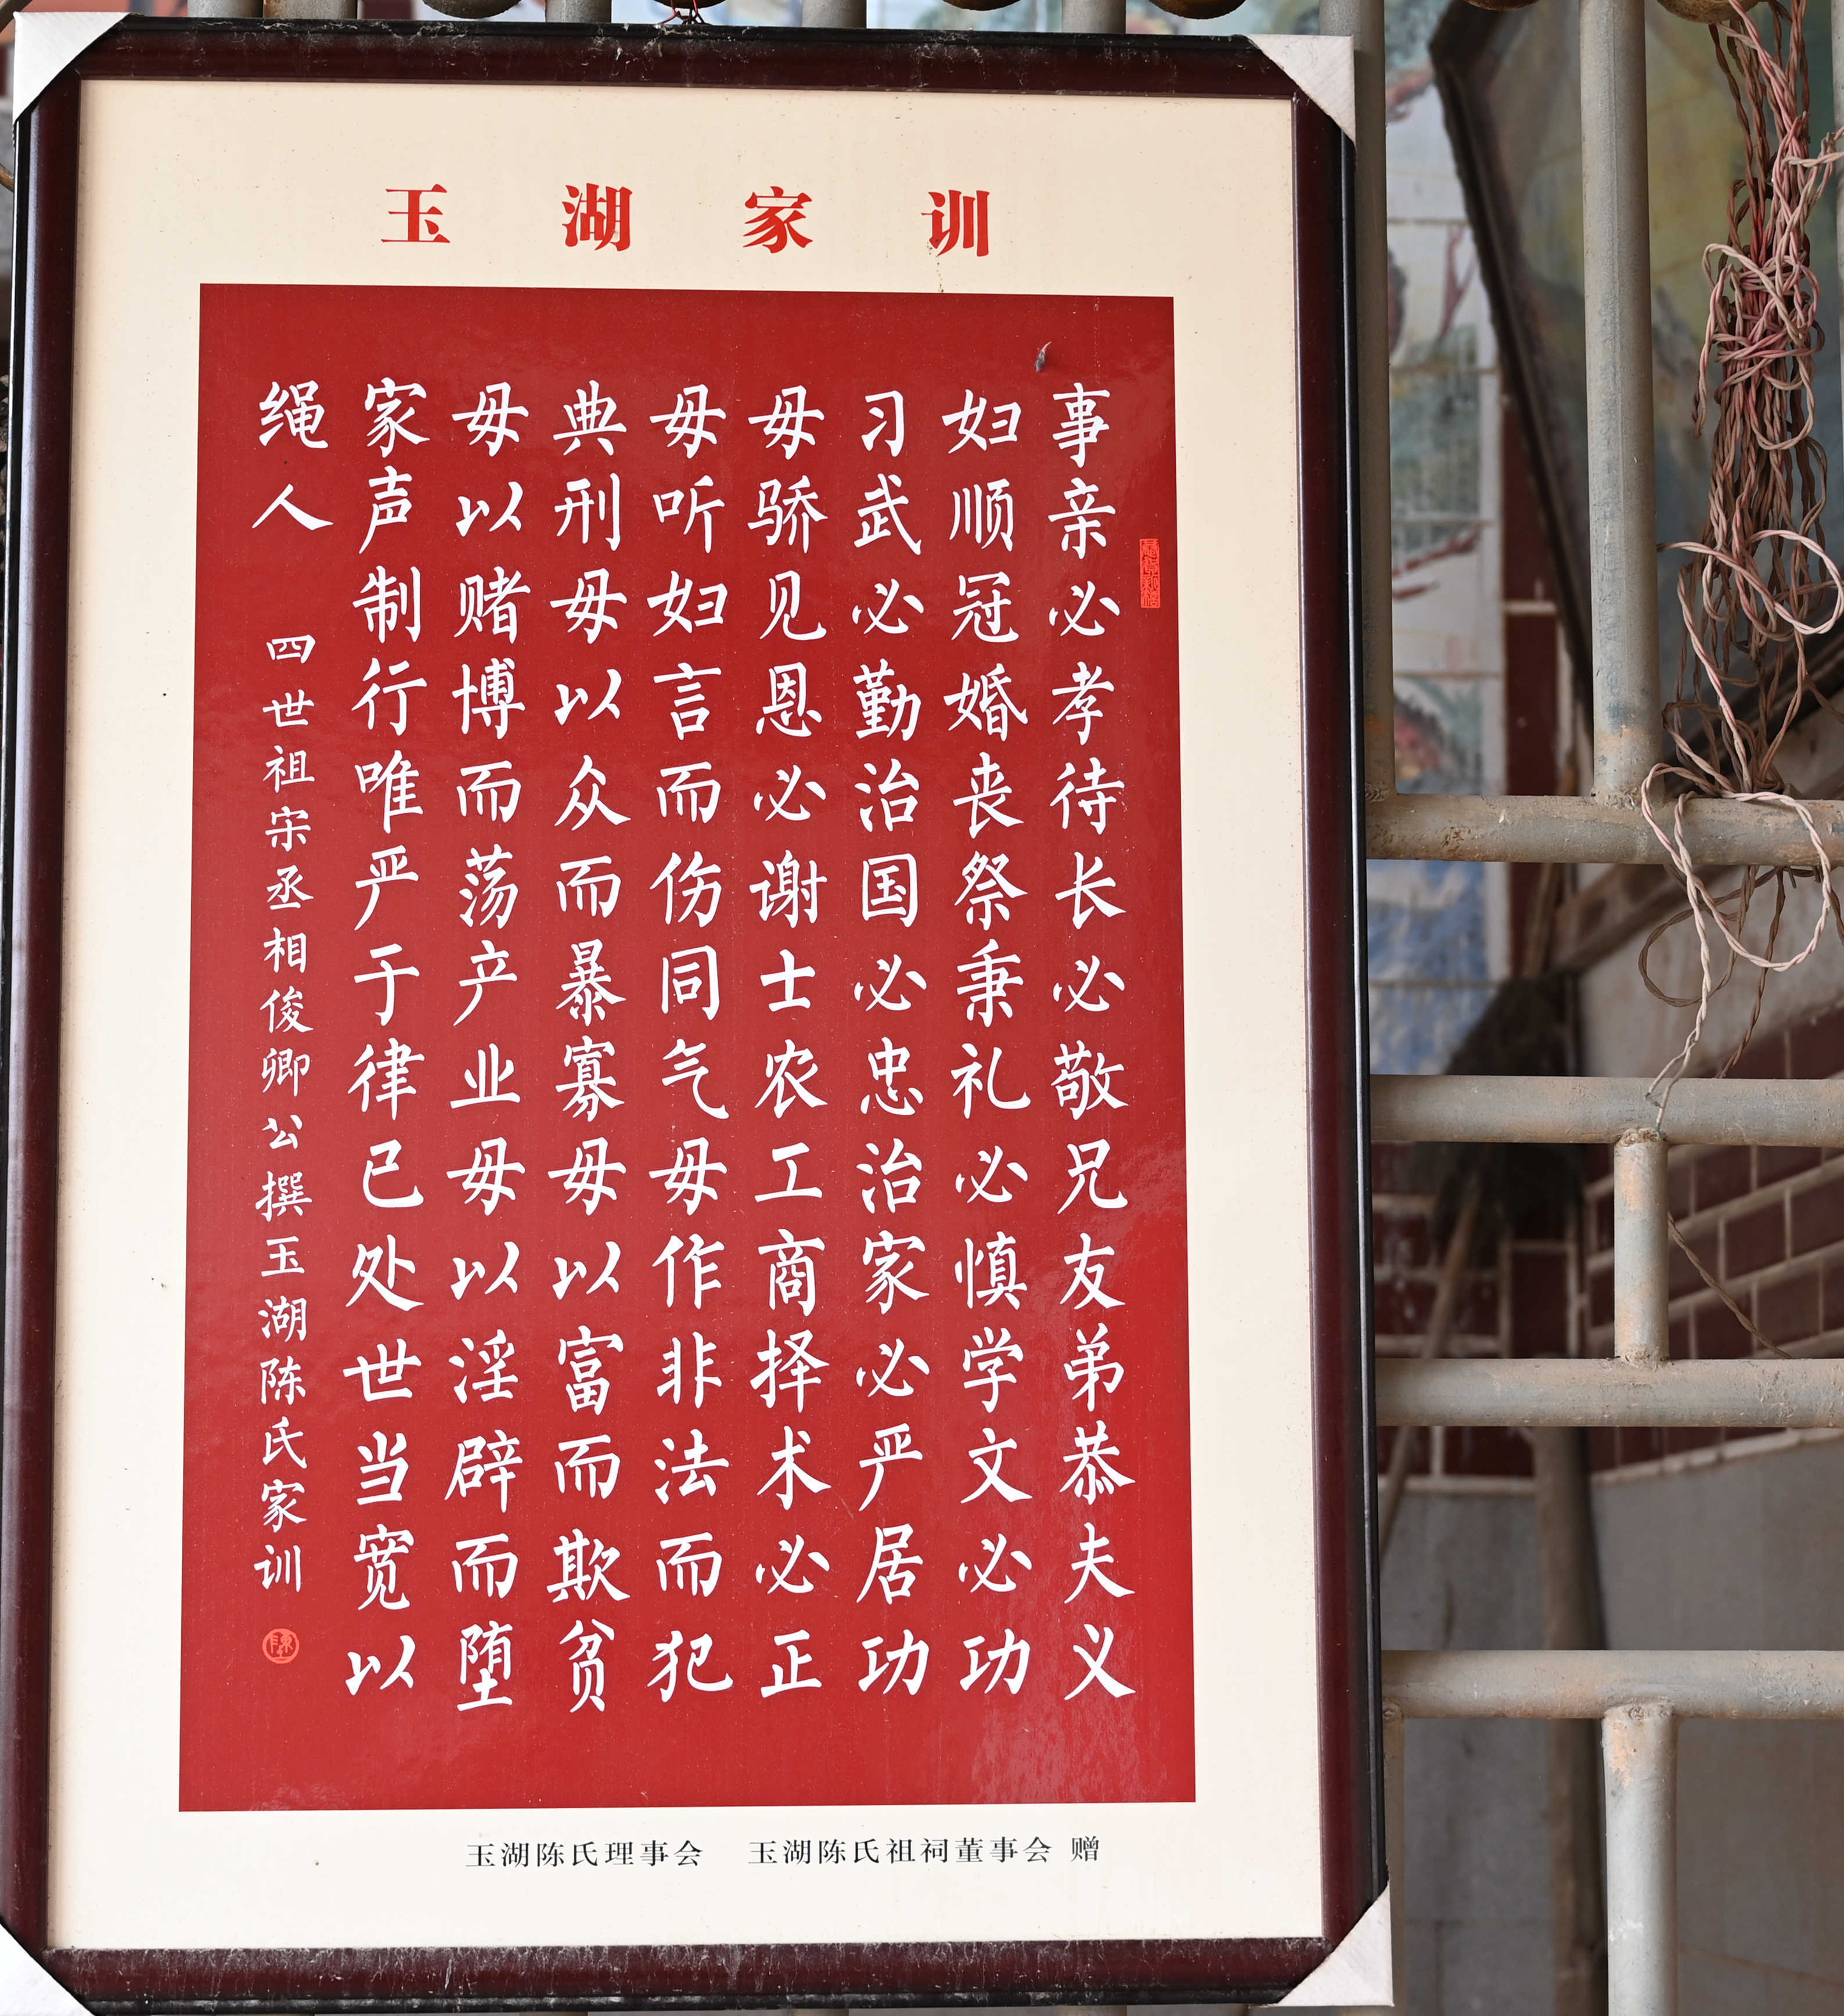 玉湖家训
事亲必孝待长必敬兄友弟恭夫义
妇顺冠婚丧祭秉礼必慎学文必功
习武必勤治国必忠治家必严居功
毋骄见恩必谢士农工商择术必正
毋听妇言而伤同气毋作非法而犯
典刑毋以众而暴寡毋以富而欺贫
毋以赌博而荡产业毋以淫辟而堕
家声制行唯严于律已处世当宽以
绳人
四世祖宋丞相俊卿公撰玉湖陈氏家训
玉湖陈氏理事会 玉湖陈氏祖祠董事会 赠